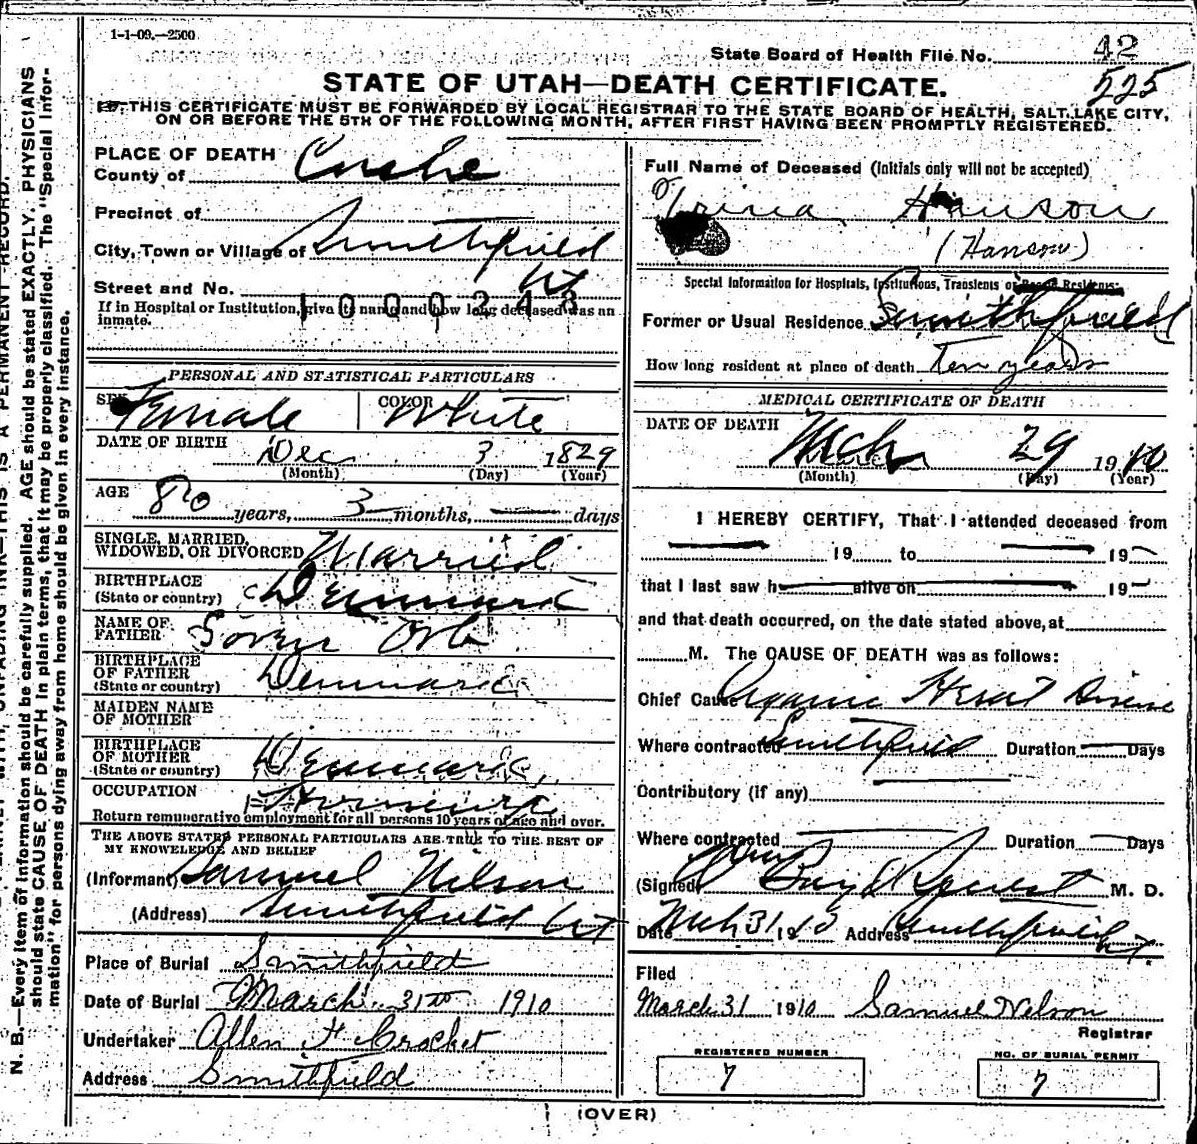 1-1-09.—2500
State Board of Health File No. 42
525
STATE OF UTAH—DEATH CERTIFICATE.
THIS CERTIFICATE MUST BE FORWARDED BY LOCAL REGISTRAR TO THE STATE BOARD OF HEALTH, SALT LAKE CITY,
ON OR BEFORE THE 5TH OF THE FOLLOWING MONTH, AFTER FIRST HAVING BEEN PROMPTLY REGISTERED.
N. B.—Every item of information should be carefully supplied. AGE should be stated EXACTLY. PHYSICIANS
should state CAUSE OF DEATH in plain terms, that it may be properly classified. The "Special Infor-
mation" for persons dying away from home should be given in every instance.
PLACE OF DEATH
County of Cache
Precinct of
City, Town or Village of Smithfield
Street and No. Ut
1000243
If in Hospital or Institution, give its name and how long deceased was an
inmate.
PERSONAL AND STATISTICAL PARTICULARS
SEX Female COLOR White
DATE OF BIRTH Dec 3 1829
(Month) (Day) (Year)
AGE
80 years, 3 months, — days
SINGLE, MARRIED,
WIDOWED, OR DIVORCED Married
BIRTHPLACE
(State or country) Denmark
NAME OF
FATHER Soren
BIRTHPLACE
OF FATHER
(State or country) Denmark
MAIDEN NAME
OF MOTHER
BIRTHPLACE
OF MOTHER
(State or country) Denmark
OCCUPATION
Return remunerative employment for all persons 10 years of age and over.
THE ABOVE STATED PERSONAL PARTICULARS ARE TRUE TO THE BEST OF
MY KNOWLEDGE AND BELIEF
(Informant) Samuel Nelson
(Address) Smithfield Ut
Place of Burial Smithfield
Date of Burial March 31st 1910
Undertaker Allen H Crocket
Address Smithfield
Full Name of Deceased (Initials only will not be accepted)
Trina Hanson
(Hanson)
Special Information for Hospitals, Institutions, Transients or Recent Residents.
Former or Usual Residence Smithfield
How long resident at place of death Ten years
MEDICAL CERTIFICATE OF DEATH
DATE OF DEATH
Mch 29 1910
(Month) (Day) (Year)
I HEREBY CERTIFY, That I attended deceased from
— 19 to — 19
that I last saw h alive on — 19
and that death occurred, on the date stated above, at
M. The CAUSE OF DEATH was as follows:
Chief Cause Organic Heart Disease
Where contracted Smithfield Duration — Days
Contributory (if any)
Where contracted — Duration — Days
(Signed) M. D.
Date Mch 31 1910 Address Smithfield Ut.
Filed
March 31 1910 Samuel Nelson
Registrar
REGISTERED NUMBER
7
NO. OF BURIAL PERMIT
7
(OVER)